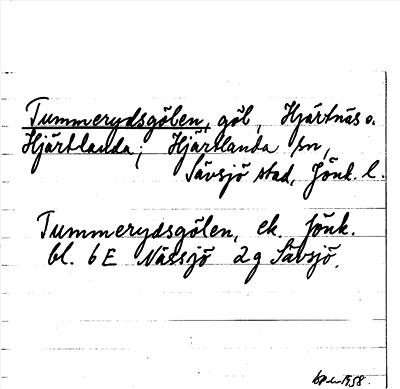 Tummerydsgölen, göl, Hjärtnäs o.
Hjärtlanda; Hjärtlanda sn,
Sävsjö stad, Jönk. l.
Tummerydsgölen, ek. Jönk.
bl. 6E Nässjö 2g Sävsjö.
1958.